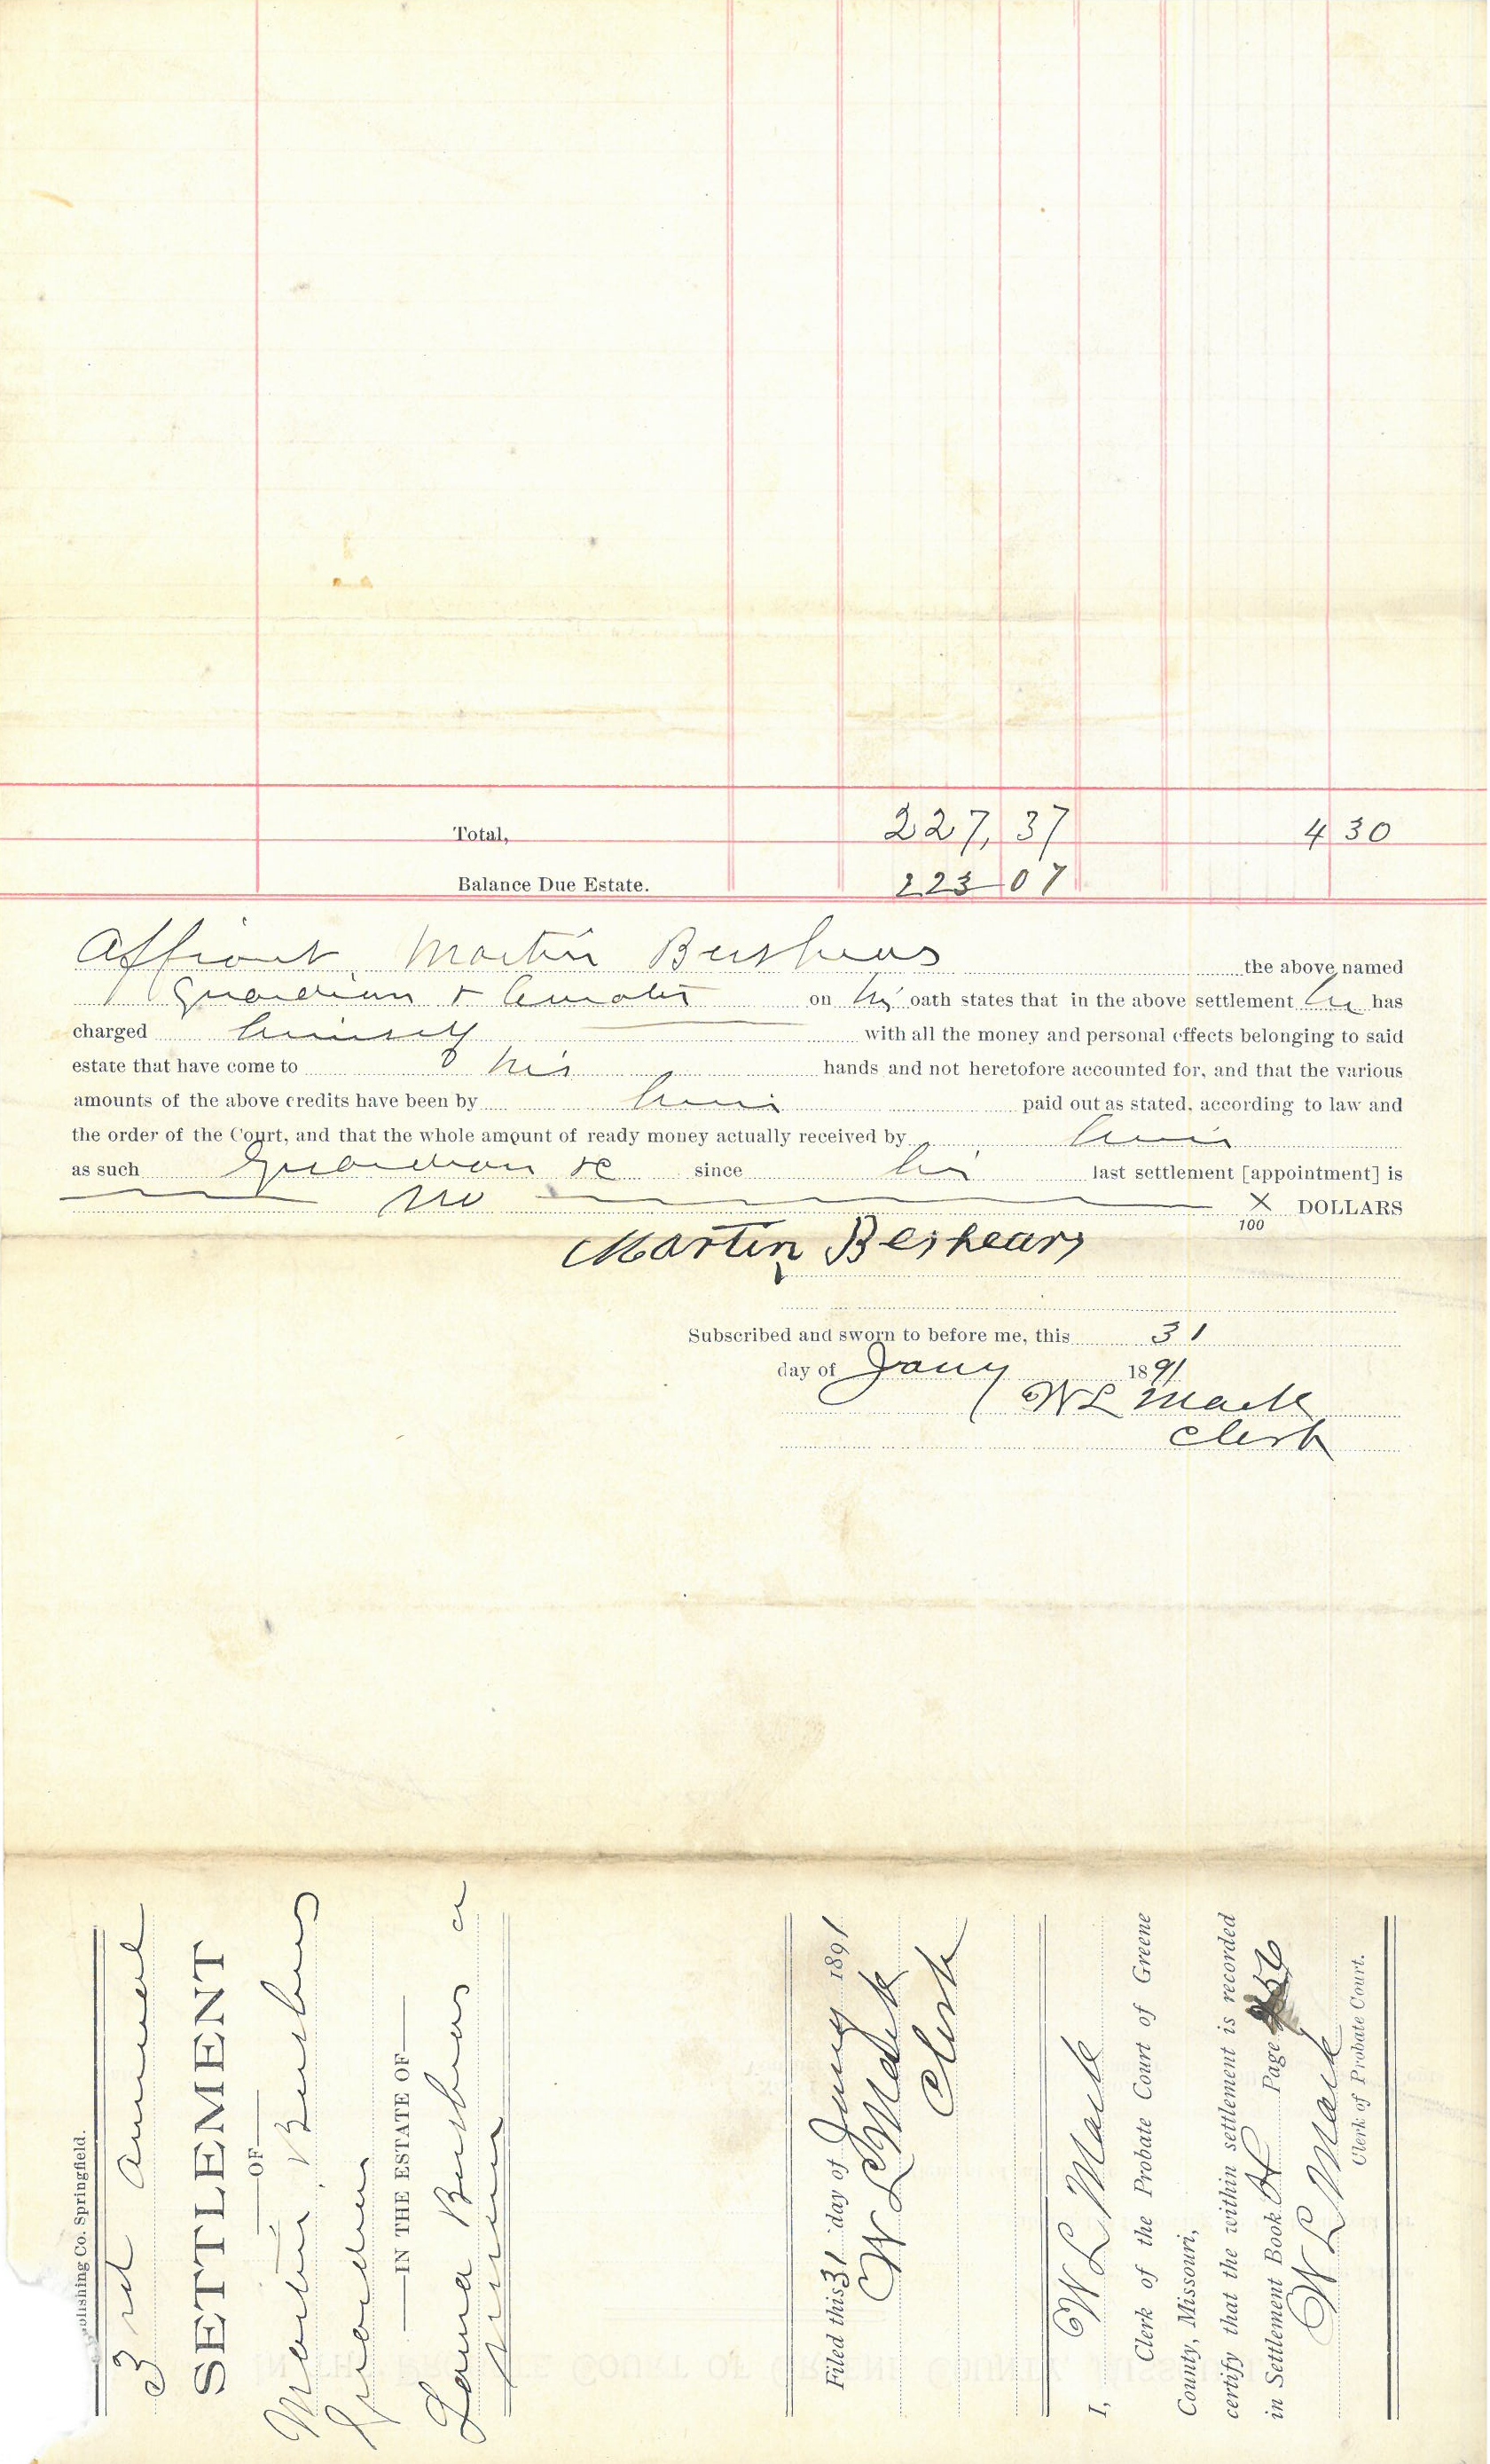 Total, 227,37 4 30
Balance Due Estate. 223 07
Affiant, Martin Beshears the above named
Guardian & Curator on his oath states that in the above settlement he has
charged himself with all the money and personal effects belonging to said
estate that have come to his hands and not heretofore accounted for, and that the various
amounts of the above credits have been by him paid out as stated, according to law and
the order of the Court, and that the whole amount of ready money actually received by him
as such Guardian &c since his last settlement [appointment] is
no X/100 DOLLARS
Martin Beshears
Subscribed and sworn to before me, this 31
day of Jany 1891
W L Mack
Clerk
blishing Co. Springfield.
3rd annual
SETTLEMENT
OF
Martin Beshears
Guardian
IN THE ESTATE OF
Beshears a
minor
Filed this 31 day of Jany 1891
W L Mack
Clerk
I, W L Mack
Clerk of the Probate Court of Greene
County, Missouri,
certify that the within settlement is recorded
in Settlement Book H Page 56
W L Mack
Clerk of Probate Court.